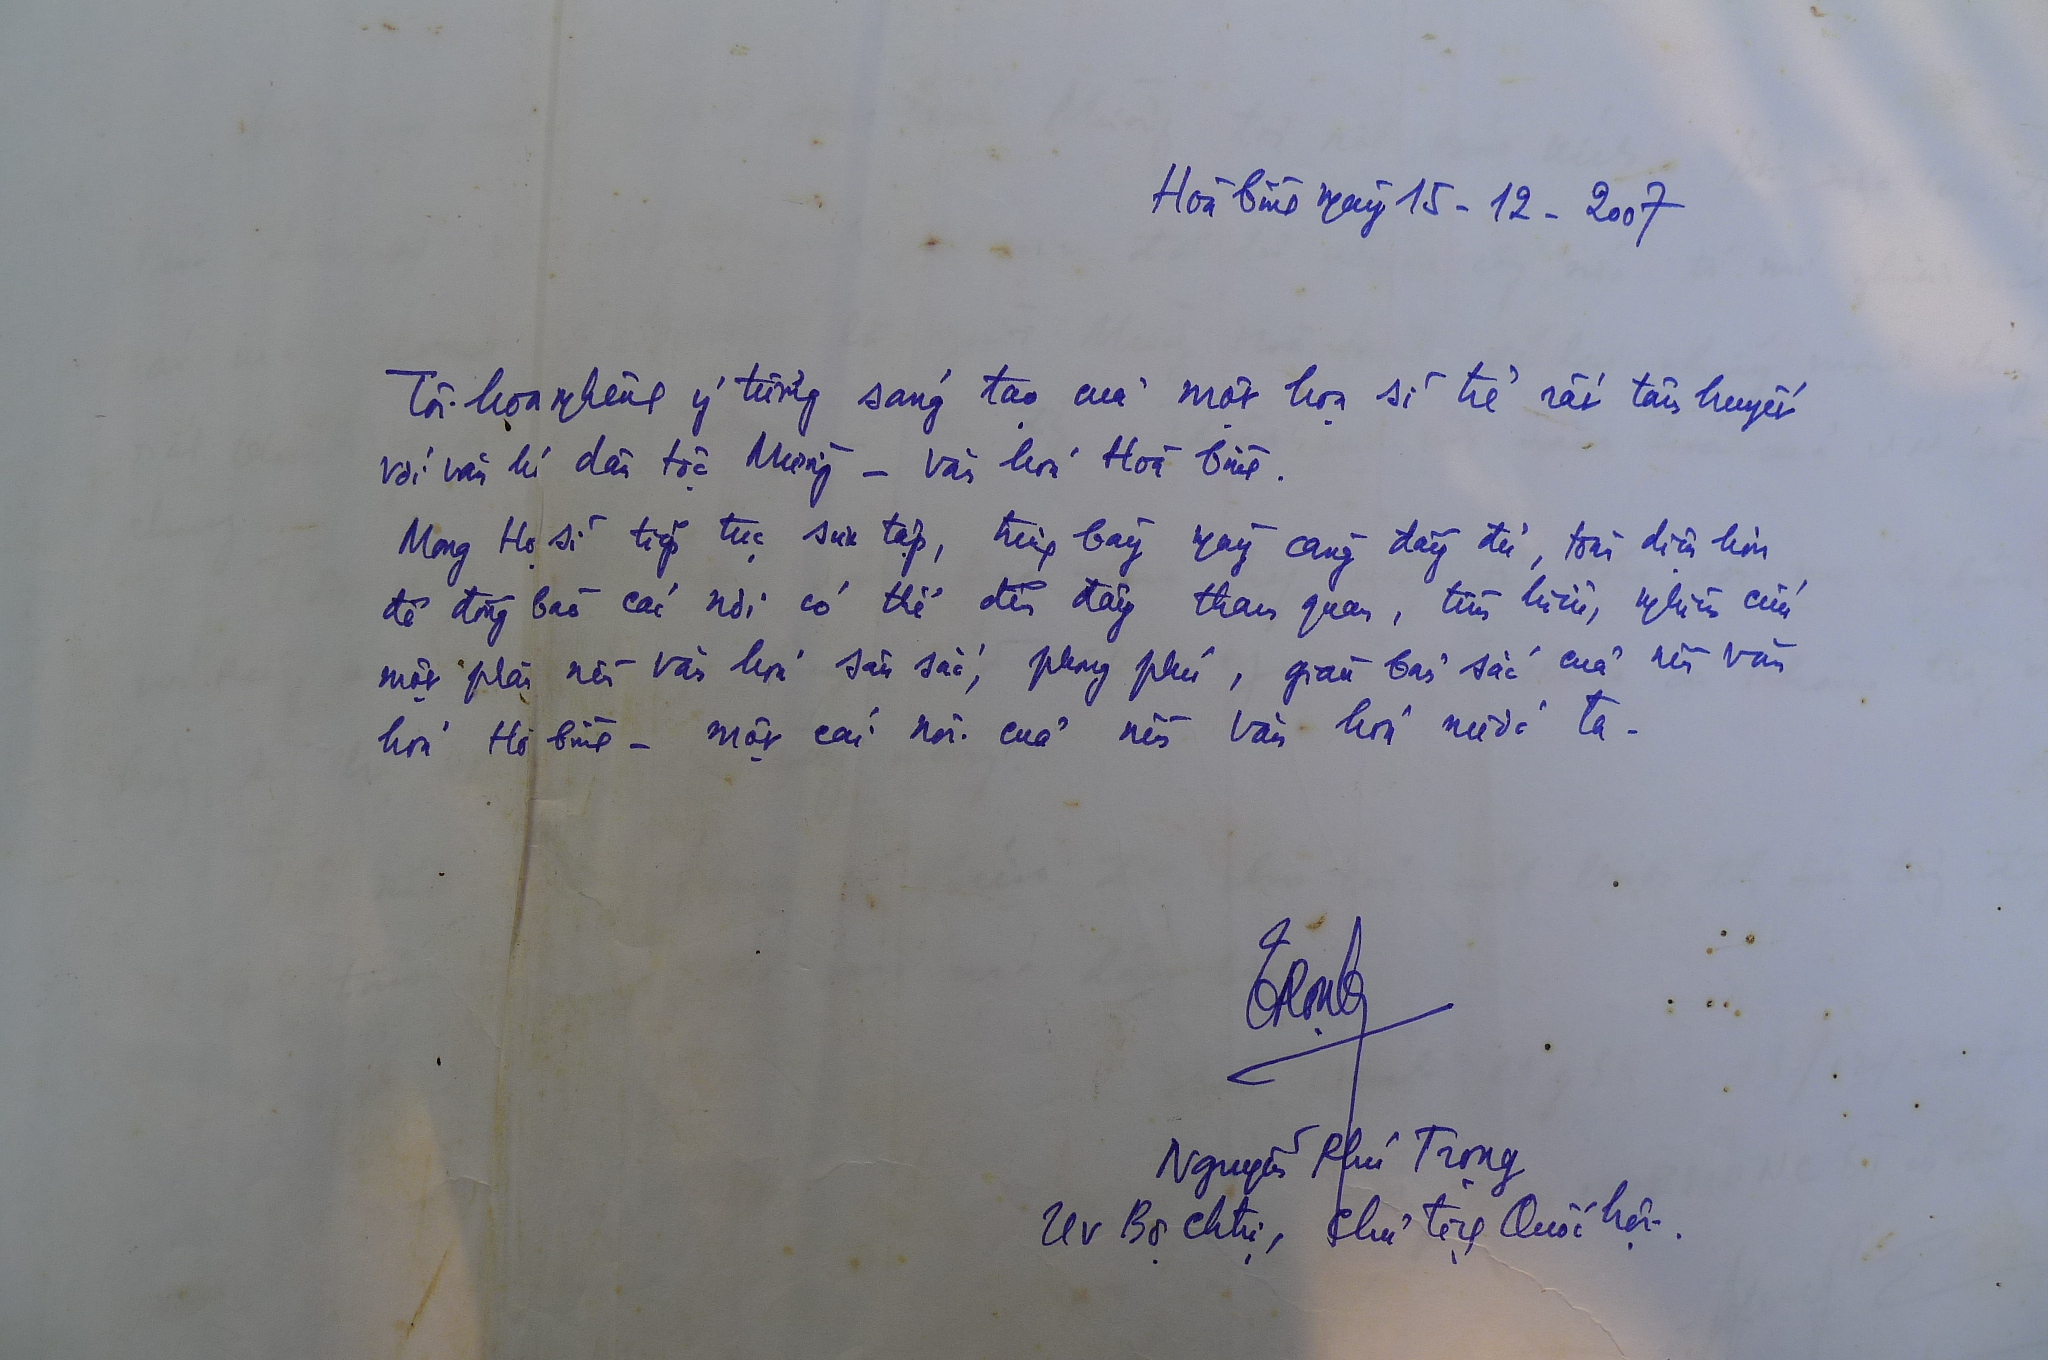 Hoà bình ngày 15-12-2007
Tôi hoan nghênh ý tưởng sáng tạo của một hoạ sĩ trẻ rất tâm huyết
với văn hoá dân tộc Mường – văn hoá Hoà bình.
Mong Hoạ sĩ tiếp tục sưu tập, trưng bày ngày càng đầy đủ, toàn diện hơn
để đồng bào các nơi có thể đến đây tham quan, tìm hiểu, nghiên cứu
một phần nền văn hoá sâu sắc, phong phú, giàu bản sắc của nền văn
hoá Hoà bình – một cái nôi của nền văn hoá nước ta.
Trọng
Nguyễn Phú Trọng
Uv Bộ Chtrị, Chủ tịch Quốc hội.